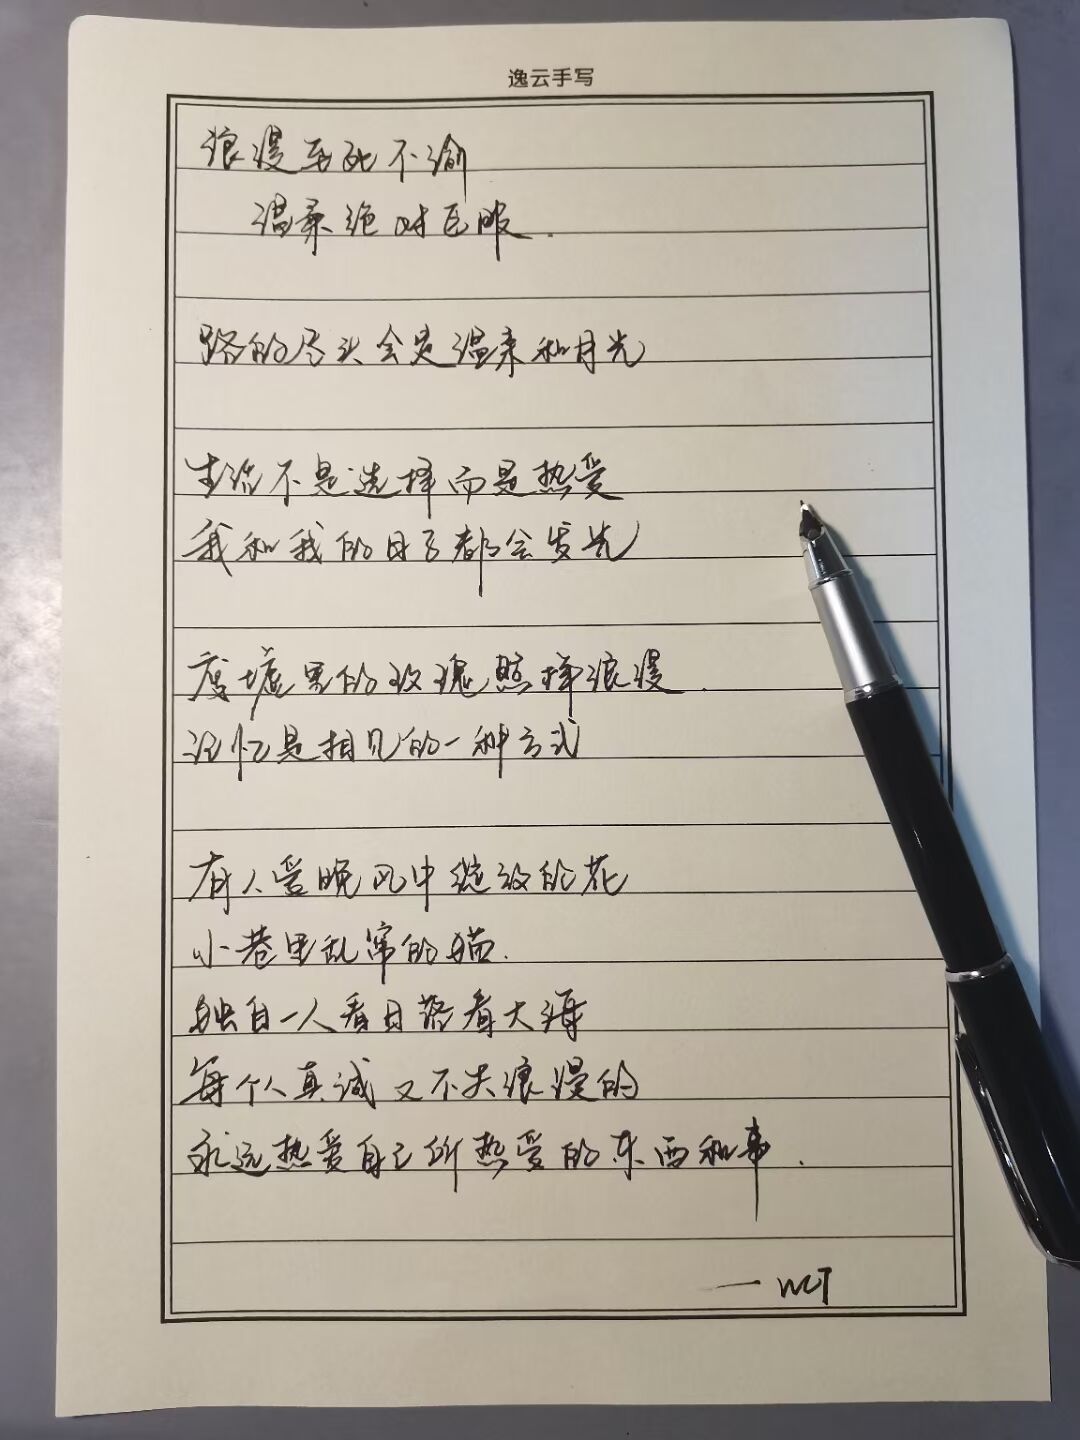 逸云手写
浪漫至死不渝
温柔绝对臣服.
路的尽头会是温柔和月光
生活不是选择而是热爱
我和我的日子都会发光
废墟里的玫瑰照样浪漫.
记忆是相见的一种方式
有人爱晚风中绽放的花
小巷里乱窜的猫.
独自一人看日落看大海
每个人真诚又不失浪漫的
永远热爱自己所热爱的东西和事.
— WCT